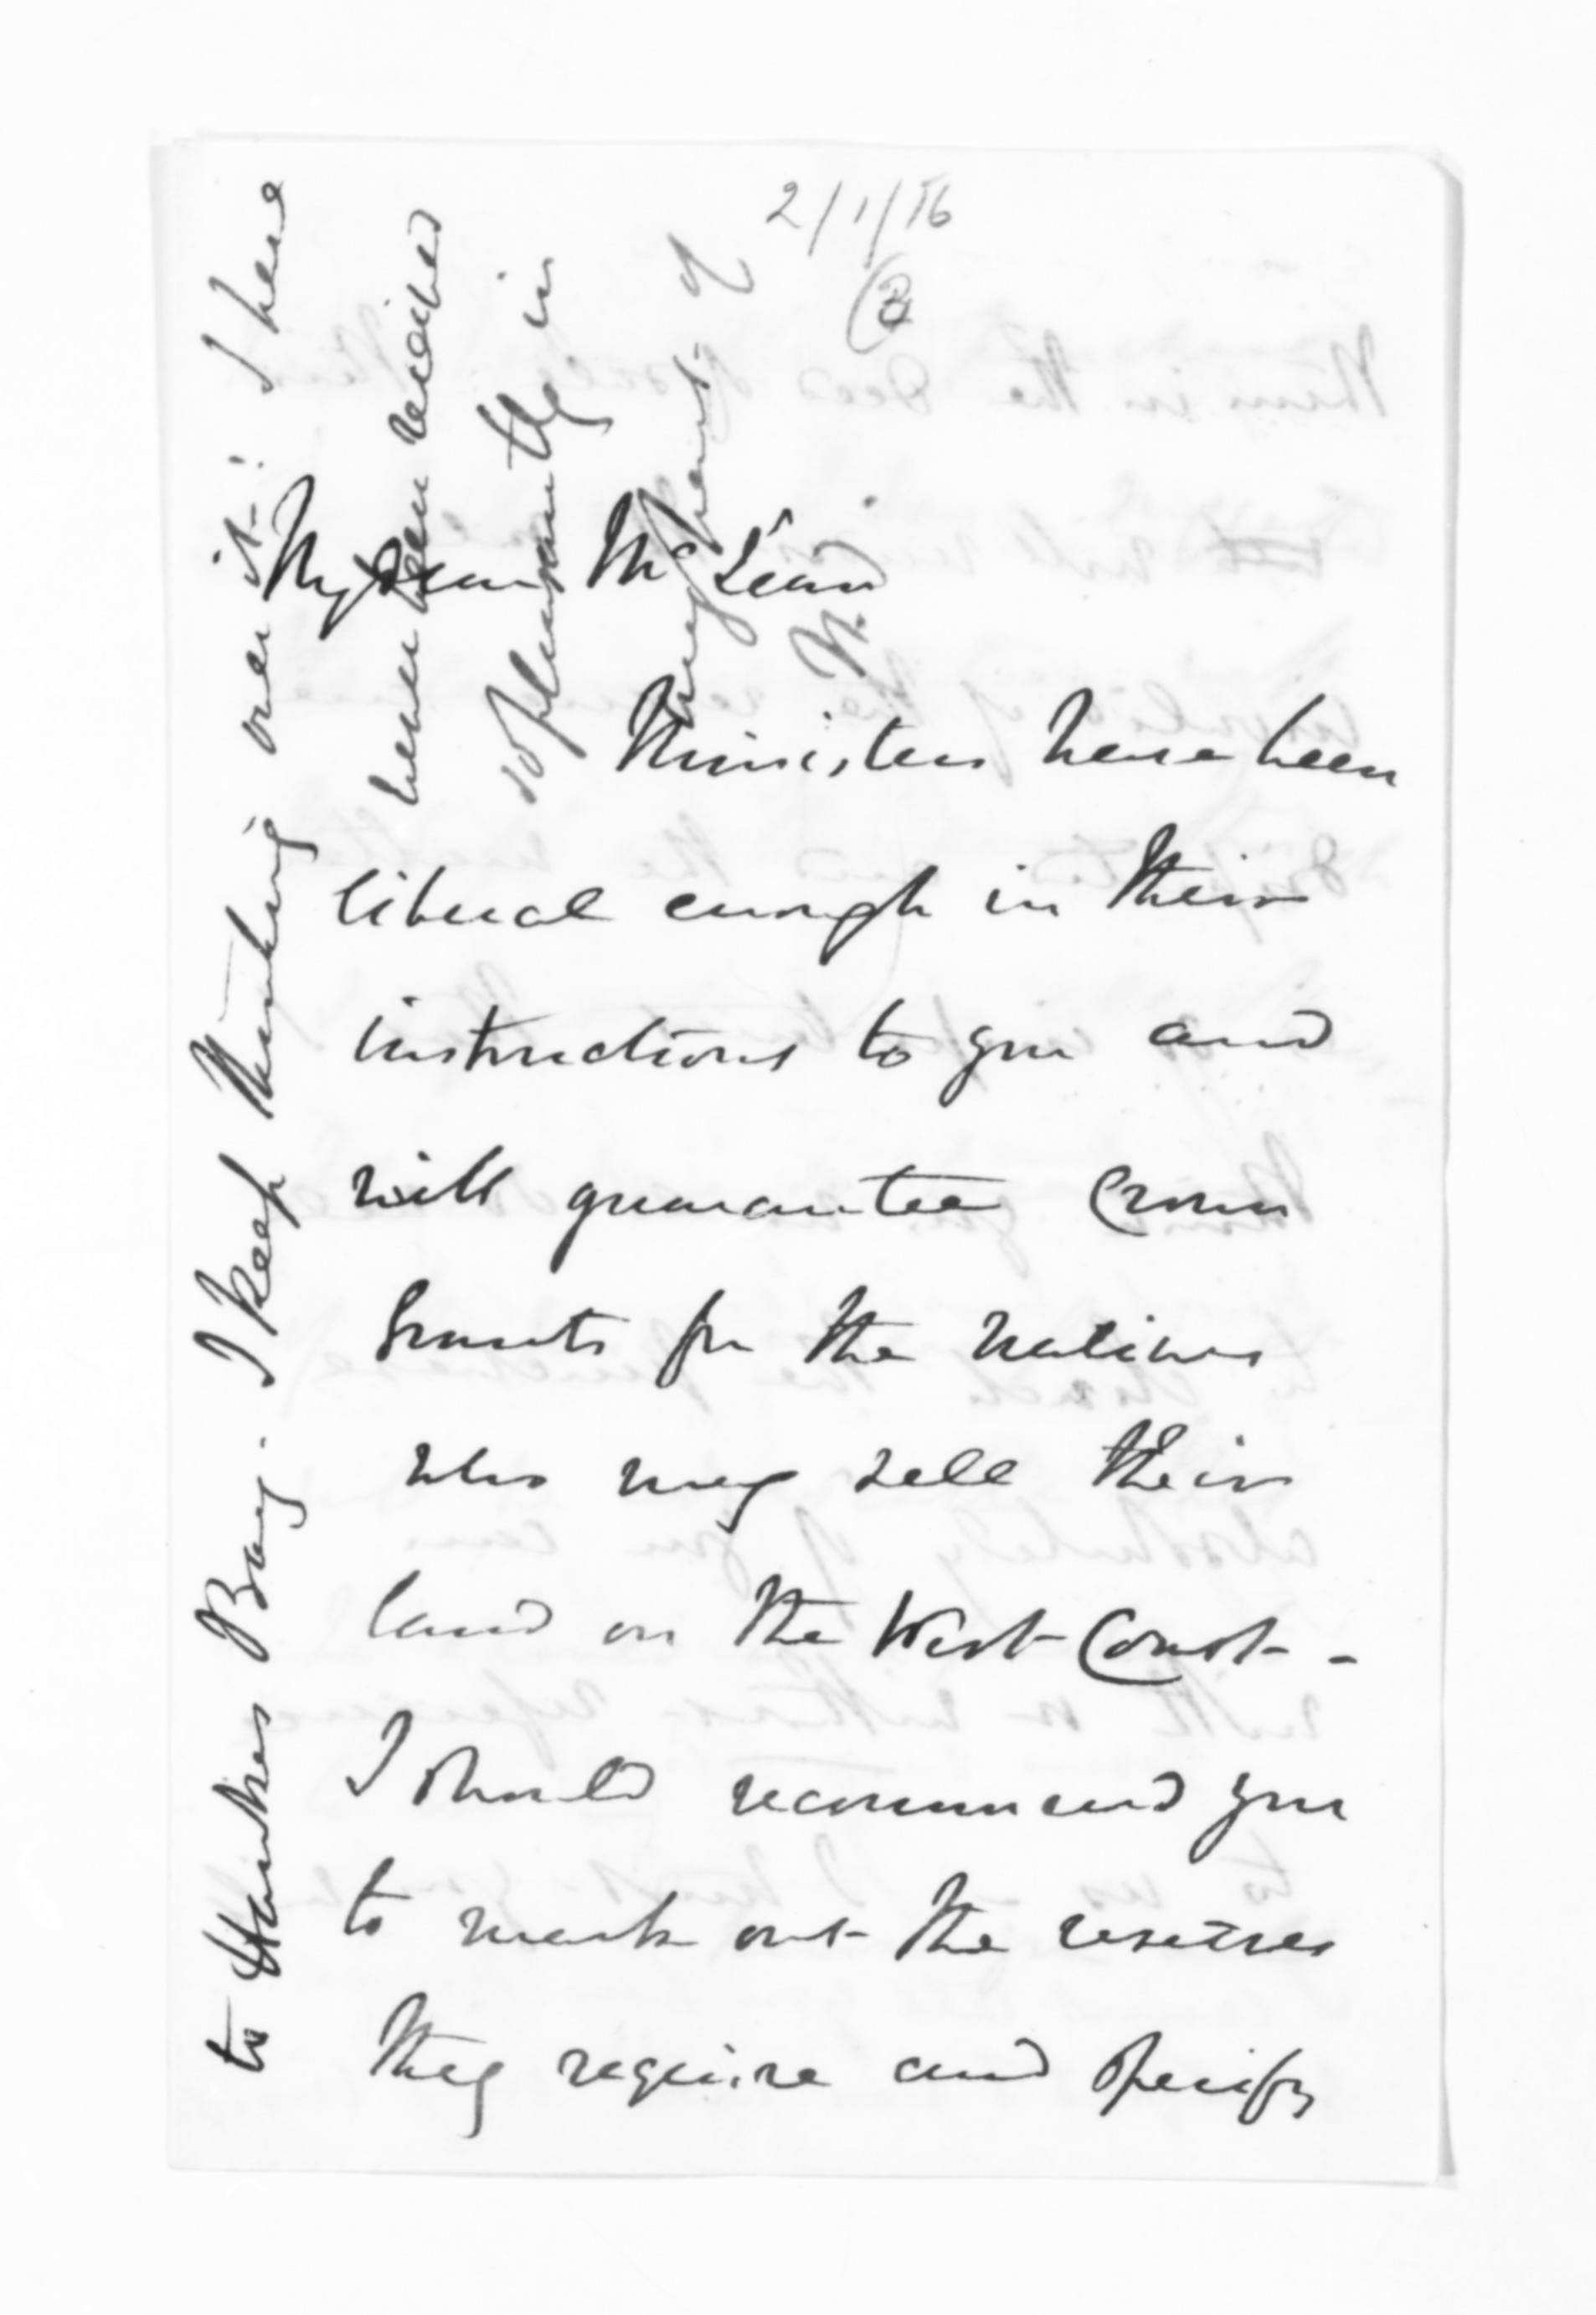 2/1/56
My dear McLean
Ministers have been
liberal enough in their
instructions to you and
will guarantee Crown
Grants for the natives
who may sell their
land on the West Coast -
I should recommend you
to mark out the reserves
they require and specify
to Hawkes Bay. I keep thinking over it! I have
never been received
so pleasantly in
any part of
N.